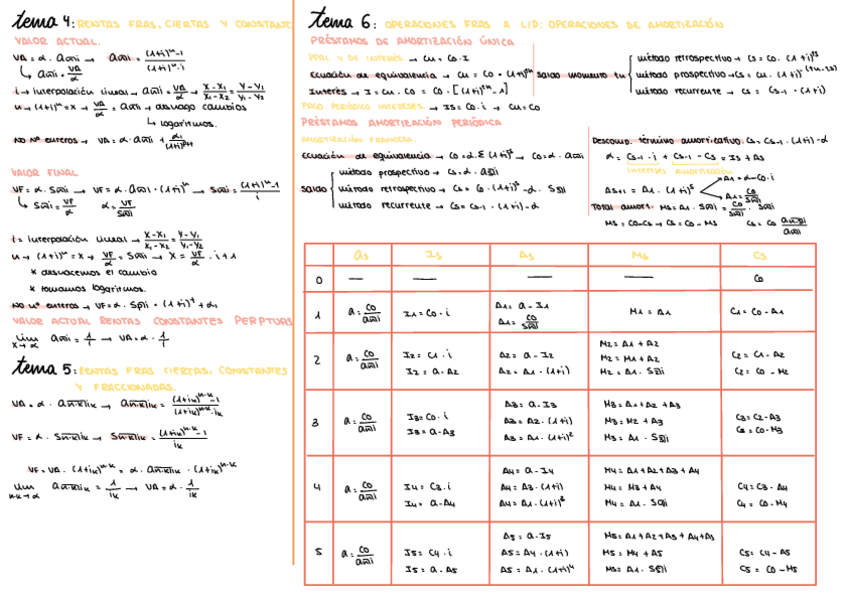 tema 4: RENTAS FRAS, CIERTAS Y CONSTANT
VALOR ACTUAL.
VA = α · an̅i → an̅i = (1+i)ⁿ-1 / (1+i)ⁿ·i
↳ an̅i = VA/α
i → interpolación lineal → an̅i = VA/α → X-X₁/X₁-X₂ = Y-Y₁/Y₁-Y₂
n → (1+i)ⁿ = x → VA/α = an̅i → deshago cambios
↳ logaritmos.
NO Nº enteros → VA = α · an̅i +
VALOR FINAL
VF = α · Sn̅i → VF = α · an̅i · (1+i)ⁿ → Sn̅i = (1+i)ⁿ-1 / i
↳ Sn̅i = VF/α α = VF/Sn̅i
i = interpolación lineal → X-X₁/X₁-X₂ = Y-Y₁/Y₁-Y₂
n → (1+i)ⁿ = x → VF/α = Sn̅i → X = VF/α · i + 1
* deshacemos el cambio
* tomamos logaritmos.
NO nº enteros → VF = α · Sp̅i · (1+i)^f + α₁
VALOR ACTUAL RENTAS CONSTANTES PERPTUAS
lim x→α an̅i = 1/i → VA = α · 1/i
tema 5: RENTAS FRAS CIERTAS, CONSTANTES
Y FRACCIONADAS.
VA = α · an·k̅ik → an·k̅ik = (1+ik)ⁿ·ᵏ-1 / (1+ik)ⁿ·ᵏ·ik
VF = α · Sn·k̅ik → Sn·k̅ik = (1+ik)ⁿ·ᵏ-1 / ik
VF = VA · (1+ik)ⁿ·ᵏ = α · an·k̅ik · (1+ik)ⁿ·ᵏ
lim n·k→α an·k̅ik = 1/ik → VA = α · 1/ik
tema 6: OPERACIONES FRAS A L/P: OPERACIONES DE AMORTIZACIÓN
PRÉSTAMOS DE AMORTIZACIÓN ÚNICA
PPAL Y DE INTERÉS → Cn = C0 · I
Ecuación de equivalencia → Cn = C0 · (1+i)ⁿ
Interés → I = Cn - C0 = C0 · [(1+i)ⁿ-1]
saldo momento tn
método retrospectivo → Cs = C0 · (1+i)^ts
método prospectivo → Cs = Cn · (1+i)^-(tn-ts)
método recurrente → Cs = Cs-1 · (1+i)
PAGO PERIÓDICO INTERESES → Is = C0 · i → Cn = C0
PRÉSTAMOS AMORTIZACIÓN PERIÓDICA
AMORTIZACIÓN FRANCESA.
Ecuación de equivalencia → C0 = α · Σ (1+i) → C0 = α · an̅i
saldo
método prospectivo → Cs = α ·
método retrospectivo → Cs = C0 · (1+i)ˢ - α · Ss̅i
método recurrente → Cs = Cs-1 · (1+i) - α
Descomp. término amortizativo. Cs = Cs-1 · (1+i) - α
α = Cs-1 · i + Cs-1 - Cs = Is + As
intereses amortización
As+1 = A1 · (1+i)ˢ
A1 = α - C0 · i
A1 = C0/Sn̅i
Total amort. Ms = A1 · Ss̅i = C0/Sn̅i · Ss̅i
Ms = C0 - Cs → Cs = C0 - Ms Cs = C0
as Is As Ms Cs
0 — — — — C0
1 a = C0/an̅i I1 = C0 · i A1 = a - I1 M1 = A1 C1 = C0 - A1
A1 = C0/Sn̅i
2 a = C0/an̅i I2 = C1 · i A2 = a - I2 M2 = A1 + A2 C2 = C1 - A2
I2 = a - A2 A2 = A1 · (1+i) M2 = M1 + A2 C2 = C0 - M2
M2 = A1 · Ss̅i
3 a = C0/an̅i I3 = C0 · i A3 = a - I3 M3 = A1 + A2 + A3 C3 = C2 - A3
I3 = a - A3 A3 = A2 · (1+i) M3 = M2 + A3 C3 = C0 - M3
A3 = A1 · (1+i)² M3 = A1 · Ss̅i
4 a = C0/an̅i I4 = C3 · i A4 = a - I4 M4 = A1 + A2 + A3 + A4 C4 = C3 - A4
I4 = a - A4 A4 = A3 · (1+i) M4 = M3 + A4 C4 = C0 - M4
A4 = A1 · (1+i)³ M4 = A1 · Ss̅i
5 a = C0/an̅i I5 = C4 · i A5 = a - I5 M5 = A1 + A2 + A3 + A4 + A5 C5 = C4 - A5
I5 = a - A5 A5 = A4 · (1+i) M5 = M4 + A5 C5 = C0 - M5
A5 = A1 · (1+i)⁴ M5 = A1 · Ss̅i